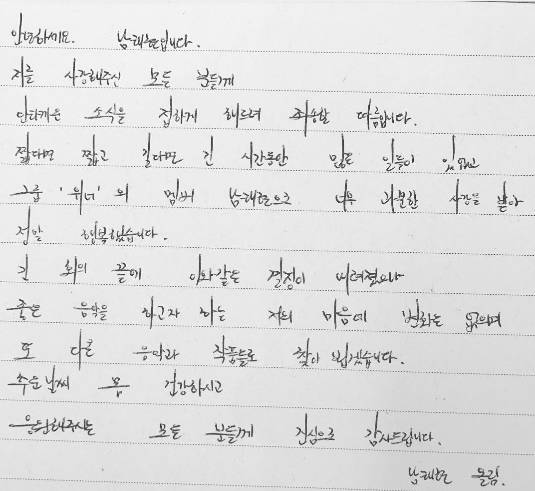 안녕하세요. 남태현입니다.
저를 사랑해주신 모든 분들께
안타까운 소식을 접하게 해드려 죄송할 따름입니다.
짧다면 짧고 길다면 긴 시간동안 많은 일들이 있었고
그룹 '위너' 의 멤버 남태현으로 너무 과분한 사랑을 받아
정말 행복했습니다.
긴 회의 끝에 이와같은 결정이 내려졌으나
좋은 음악을 하고자 하는 저의 마음에 변화는 없으며
또 다른 음악과 작품들로 찾아 뵙겠습니다.
추운날씨 몸 건강하시고
응원해주시는 모든 분들께 진심으로 감사드립니다.
남태현 올림.